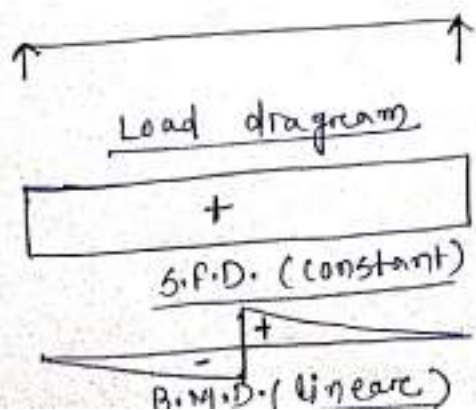 Load diagream
+
S.F.D. (constant)
+
-
B.M.D. (lineare)